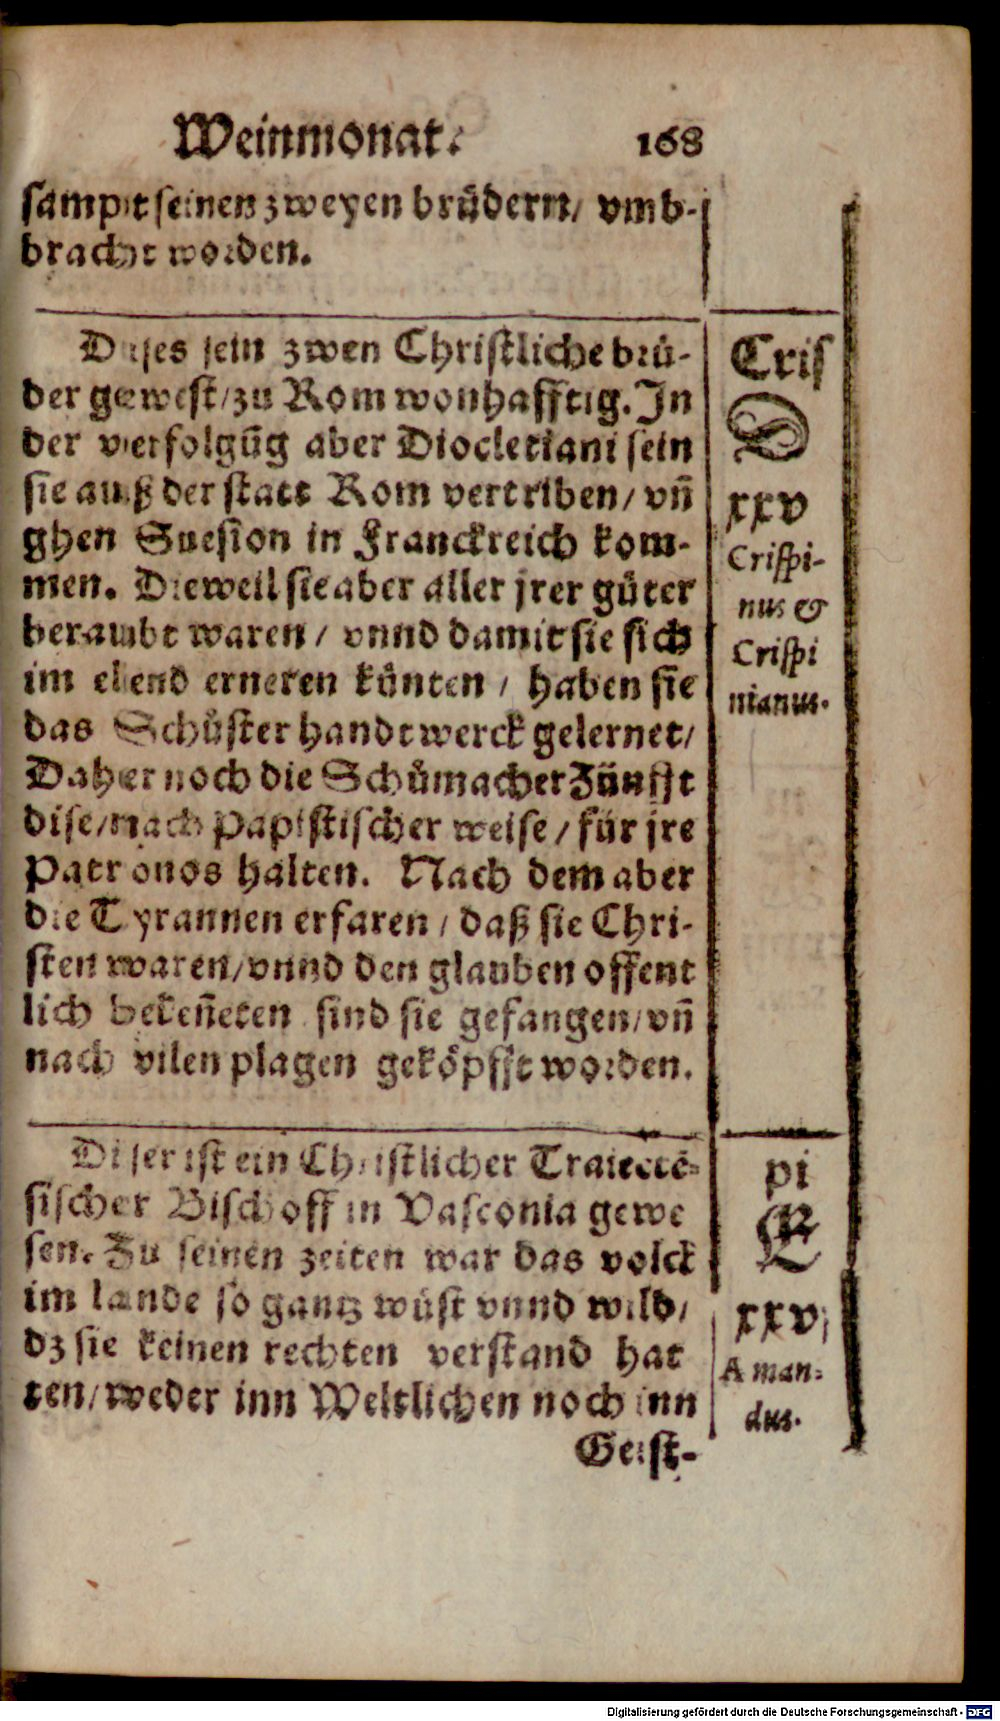 Weinmonat. 168
sampt seinen zweyen brüdern/ vmb-
bracht worden.
Dises sein zwen Christliche brü-
der gewest/zu Rom wonhafftig. In
der verfolgūg aber Diocletiani sein
sie auß der statt Rom vertriben/ vñ
ghen Suesion in Franckreich kom-
men. Dieweil sie aber aller jrer güter
beraubt waren/ vnnd damit sie sich
im elend erneren künten / haben sie
das Schůster handtwerck gelernet/
Daher noch die Schůmacher Zünfft
dise/nach Papistischer weise / für jre
Patronos halten. Nach dem aber
die Tyrannen erfaren / daß sie Chri-
sten waren/vnnd den glauben offent
lich bekeñeten sind sie gefangen/vñ
nach vilen plagen geköpfft worden.
Cris
D
xxv
Crispi-
nus &
Crispi
nianus.
Diser ist ein Christlicher Traiectē-
sischer Bischoff in Vasconia gewe
sen. Zu seinen zeiten war das volck
im lande so gantz wüst vnnd wild/
dz sie keinen rechten verstand hat
ten/weder inn Weltlichen noch inn
Geist-
pi
E
xxvj
Aman-
dus.
Digitalisierung gefördert durch die Deutsche Forschungsgemeinschaft - DFG